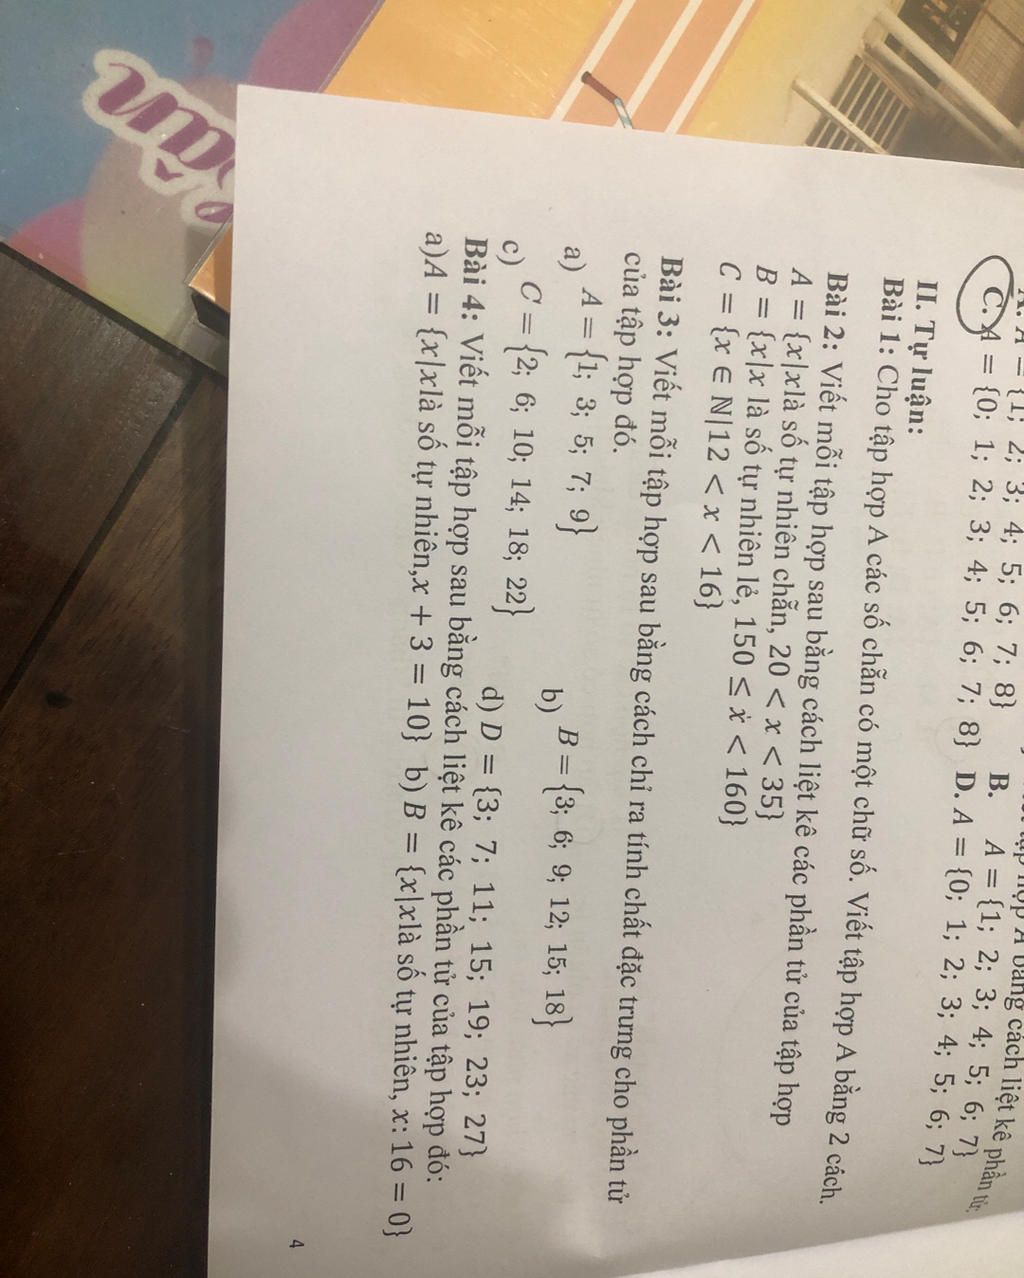 A. A = {1; 2; 3; 4; 5; 6; 7; 8} B. A = {1; 2; 3; 4; 5; 6; 7}
C. A = {0; 1; 2; 3; 4; 5; 6; 7; 8} D. A = {0; 1; 2; 3; 4; 5; 6; 7}
II. Tự luận:
Bài 1: Cho tập hợp A các số chẵn có một chữ số. Viết tập hợp A bằng 2 cách.
Bài 2: Viết mỗi tập hợp sau bằng cách liệt kê các phần tử của tập hợp
A = {x|xlà số tự nhiên chẵn, 20 < x < 35}
B = {x|x là số tự nhiên lẻ, 150 ≤ x < 160}
C = {x ∈ ℕ|12 < x < 16}
Bài 3: Viết mỗi tập hợp sau bằng cách chỉ ra tính chất đặc trưng cho phần tử
của tập hợp đó.
a) A = {1; 3; 5; 7; 9} b) B = {3; 6; 9; 12; 15; 18}
c) C = {2; 6; 10; 14; 18; 22} d) D = {3; 7; 11; 15; 19; 23; 27}
Bài 4: Viết mỗi tập hợp sau bằng cách liệt kê các phần tử của tập hợp đó:
a)A = {x|xlà số tự nhiên,x + 3 = 10} b) B = {x|xlà số tự nhiên, x: 16 = 0}
4